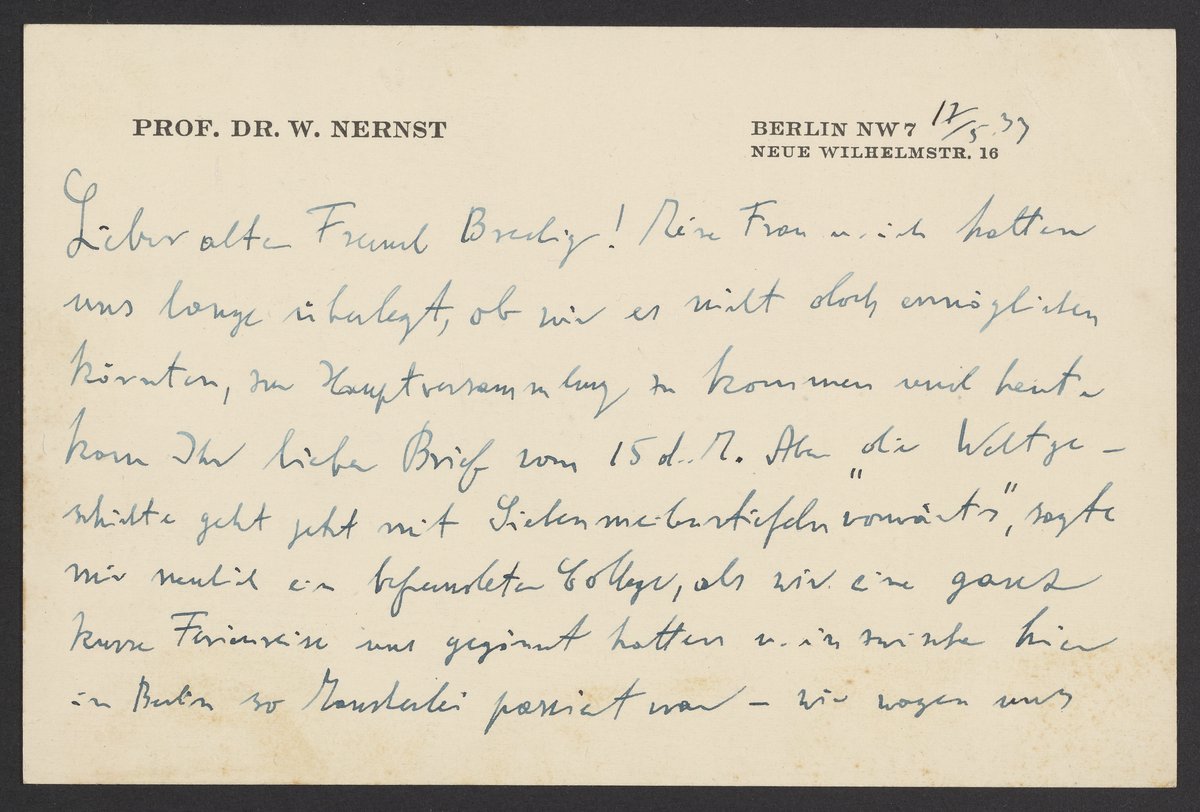 PROF. DR. W. NERNST
BERLIN NW 7 17/5. 33
NEUE WILHELMSTR. 16
Lieber alter Freund Bredig! Meine Frau u. ich hatten
uns lange überlegt, ob wir es nicht doch ermöglichen
könnten, zur Hauptversammlung zu kommen und heute
kam Ihr lieber Brief vom 15 d. M. Aber „die Weltge-
schichte geht jetzt mit Siebenmeilenstiefeln vorwärts", sagte
mir neulich ein befreundeter College, als wir eine ganz
kurze Ferienreise uns gegönnt hatten u. inzwischen hier
in Berlin so Mancherlei passiert war – wir wagen uns